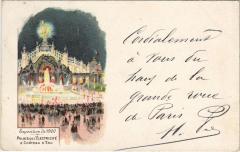 Exposition de 1900
PALAIS DE L'ÉLECTRICITÉ
& CHÂTEAU D'EAU
Cordialement
à vous du
haut de la
grande roue
de Paris